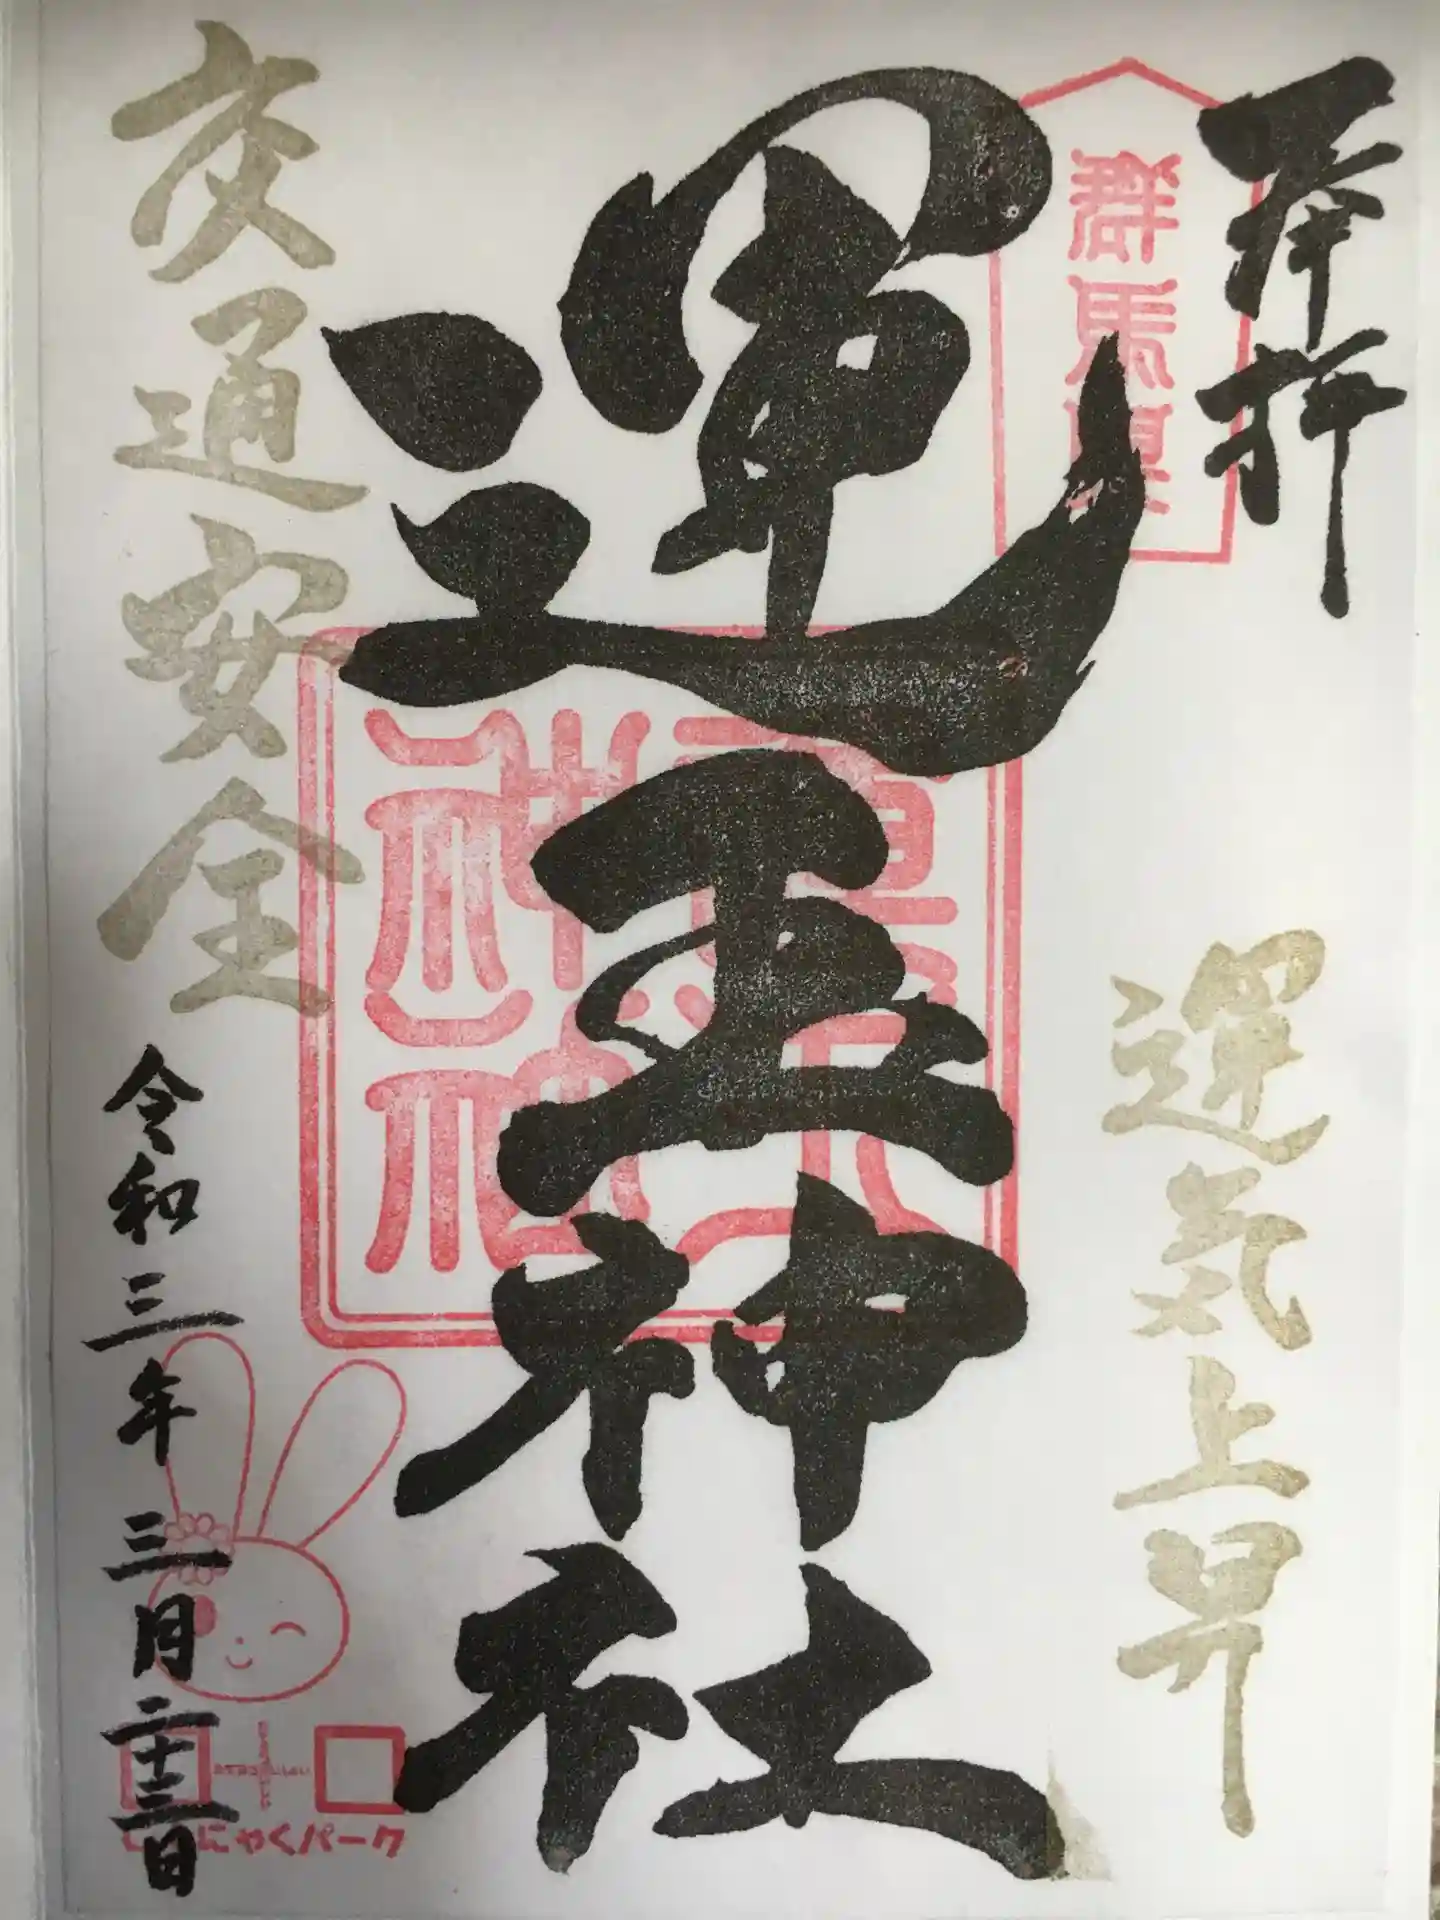 奉拝
群馬県
運気上昇
運玉神社
交通安全
令和三年三月二十三日
こんにゃくパーク